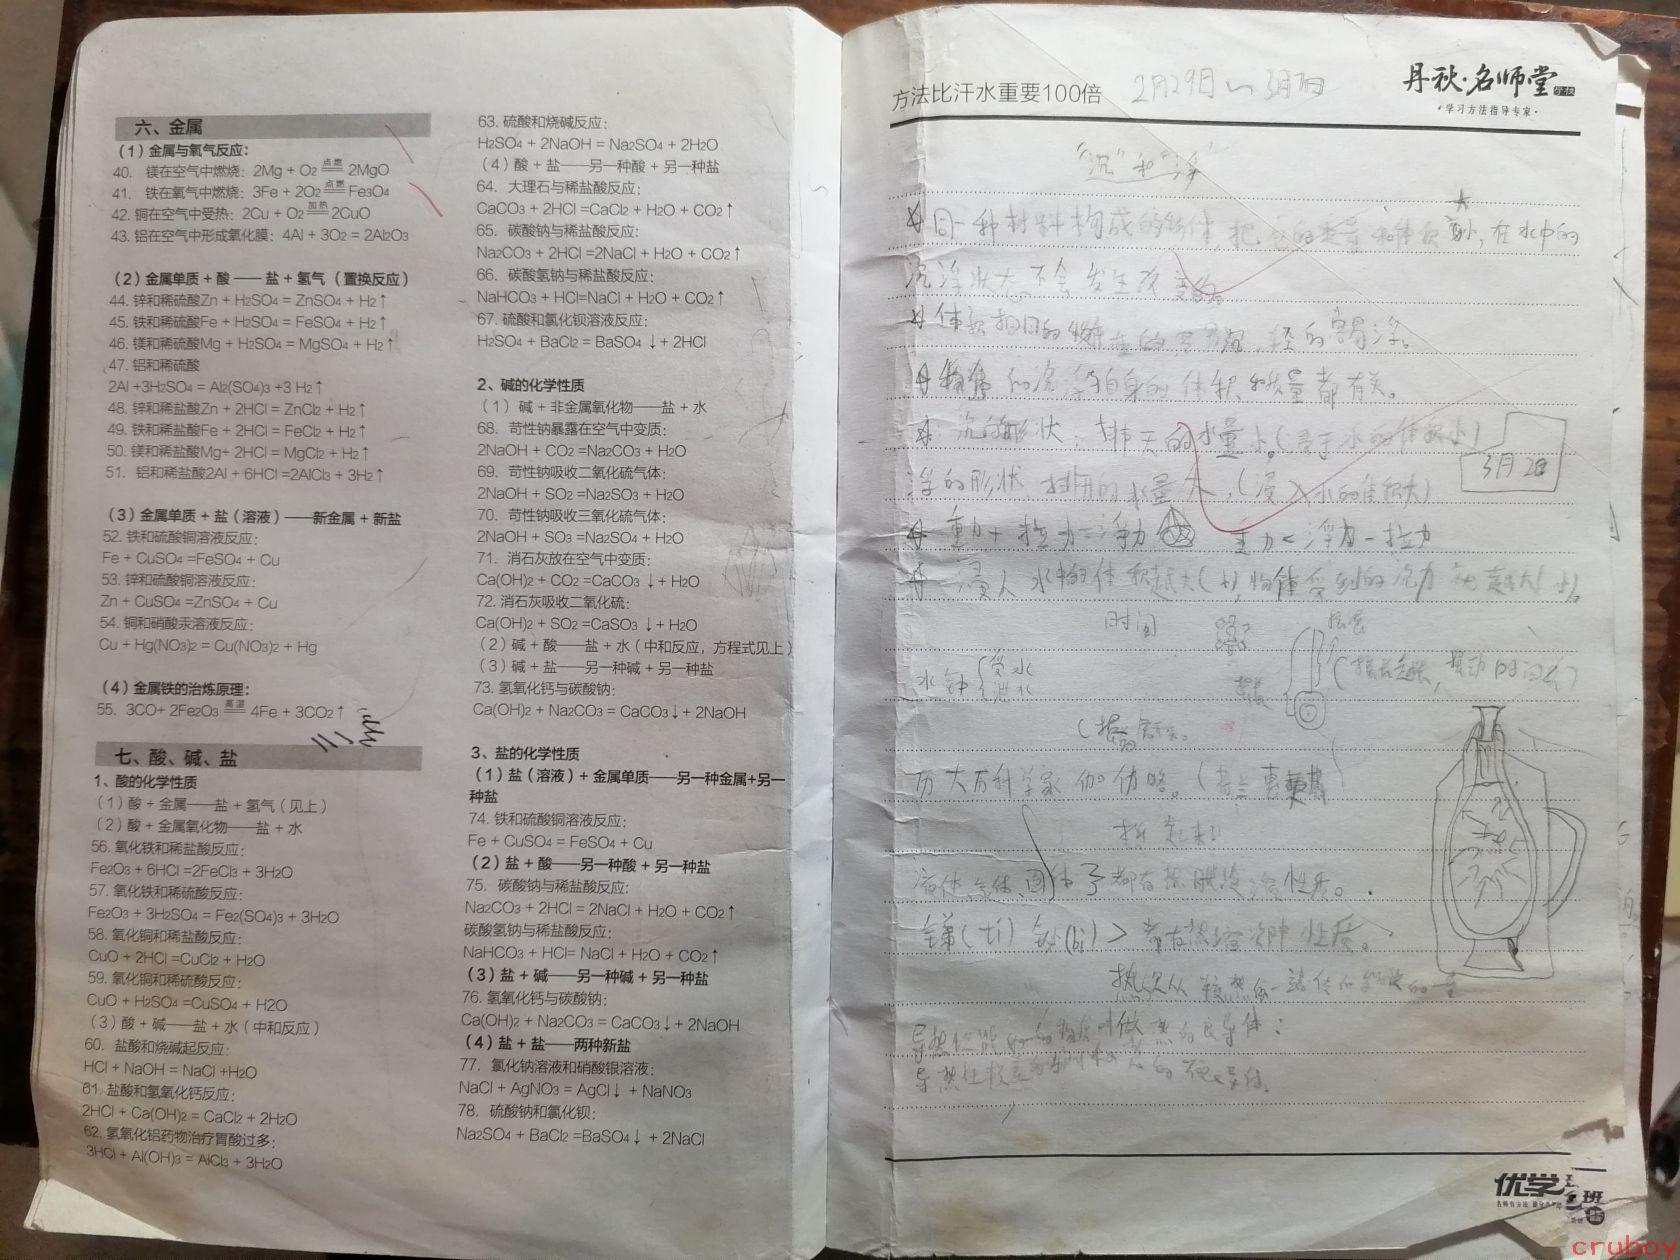 六、金属
（1）金属与氧气反应：
40. 镁在空气中燃烧：2Mg + O2 点燃 2MgO
41. 铁在氧气中燃烧：3Fe + 2O2 点燃 Fe3O4
42. 铜在空气中受热：2Cu + O2 加热 2CuO
43. 铝在空气中形成氧化膜：4Al + 3O2 = 2Al2O3
（2）金属单质 + 酸 —— 盐 + 氢气（置换反应）
44. 锌和稀硫酸Zn + H2SO4 = ZnSO4 + H2↑
45. 铁和稀硫酸Fe + H2SO4 = FeSO4 + H2↑
46. 镁和稀硫酸Mg + H2SO4 = MgSO4 + H2↑
47. 铝和稀硫酸
2Al +3H2SO4 = Al2(SO4)3 +3 H2↑
48. 锌和稀盐酸Zn + 2HCl = ZnCl2 + H2↑
49. 铁和稀盐酸Fe + 2HCl = FeCl2 + H2↑
50. 镁和稀盐酸Mg+ 2HCl = MgCl2 + H2↑
51. 铝和稀盐酸2Al + 6HCl =2AlCl3 + 3H2↑
（3）金属单质 + 盐（溶液）——新金属 + 新盐
52. 铁和硫酸铜溶液反应：
Fe + CuSO4 =FeSO4 + Cu
53. 锌和硫酸铜溶液反应：
Zn + CuSO4 =ZnSO4 + Cu
54. 铜和硝酸汞溶液反应：
Cu + Hg(NO3)2 = Cu(NO3)2 + Hg
（4）金属铁的治炼原理：
55. 3CO+ 2Fe2O3 高温 4Fe + 3CO2↑
七、酸、碱、盐
1、酸的化学性质
（1）酸 + 金属——盐 + 氢气（见上）
（2）酸 + 金属氧化物——盐 + 水
56. 氧化铁和稀盐酸反应：
Fe2O3 + 6HCl =2FeCl3 + 3H2O
57. 氧化铁和稀硫酸反应：
Fe2O3 + 3H2SO4 = Fe2(SO4)3 + 3H2O
58. 氧化铜和稀盐酸反应：
CuO + 2HCl =CuCl2 + H2O
59. 氧化铜和稀硫酸反应：
CuO + H2SO4 =CuSO4 + H2O
（3）酸 + 碱——盐 + 水（中和反应）
60. 盐酸和烧碱起反应：
HCl + NaOH = NaCl +H2O
61. 盐酸和氢氧化钙反应：
2HCl + Ca(OH)2 = CaCl2 + 2H2O
62. 氢氧化铝药物治疗胃酸过多：
3HCl + Al(OH)3 = AlCl3 + 3H2O
63. 硫酸和烧碱反应：
H2SO4 + 2NaOH = Na2SO4 + 2H2O
（4）酸 + 盐——另一种酸 + 另一种盐
64. 大理石与稀盐酸反应：
CaCO3 + 2HCl =CaCl2 + H2O + CO2↑
65. 碳酸钠与稀盐酸反应：
Na2CO3 + 2HCl =2NaCl + H2O + CO2↑
66. 碳酸氢钠与稀盐酸反应：
NaHCO3 + HCl=NaCl + H2O + CO2↑
67. 硫酸和氯化钡溶液反应：
H2SO4 + BaCl2 = BaSO4 ↓+ 2HCl
2、碱的化学性质
（1）碱 + 非金属氧化物——盐 + 水
68. 苛性钠暴露在空气中变质：
2NaOH + CO2 =Na2CO3 + H2O
69. 苛性钠吸收二氧化硫气体：
2NaOH + SO2 =Na2SO3 + H2O
70. 苛性钠吸收三氧化硫气体：
2NaOH + SO3 =Na2SO4 + H2O
71. 消石灰放在空气中变质：
Ca(OH)2 + CO2 =CaCO3 ↓+ H2O
72. 消石灰吸收二氧化硫：
Ca(OH)2 + SO2 =CaSO3 ↓+ H2O
（2）碱 + 酸——盐 + 水（中和反应，方程式见上）
（3）碱 + 盐——另一种碱 + 另一种盐
73. 氢氧化钙与碳酸钠：
Ca(OH)2 + Na2CO3 = CaCO3↓+ 2NaOH
3、盐的化学性质
（1）盐（溶液）+ 金属单质——另一种金属+另一
种盐
74. 铁和硫酸铜溶液反应：
Fe + CuSO4 = FeSO4 + Cu
（2）盐 + 酸——另一种酸 + 另一种盐
75. 碳酸钠与稀盐酸反应：
Na2CO3 + 2HCl = 2NaCl + H2O + CO2↑
碳酸氢钠与稀盐酸反应：
NaHCO3 + HCl= NaCl + H2O + CO2↑
（3）盐 + 碱——另一种碱 + 另一种盐
76. 氢氧化钙与碳酸钠：
Ca(OH)2 + Na2CO3 = CaCO3↓+ 2NaOH
（4）盐 + 盐——两种新盐
77. 氯化钠溶液和硝酸银溶液：
NaCl + AgNO3 = AgCl↓ + NaNO3
78. 硫酸钠和氯化钡：
Na2SO4 + BaCl2 =BaSO4↓ + 2NaCl
方法比汗水重要100倍
2月29日
丹秋·名师堂
学校
·学习方法指导专家·
“沉”和“浮”
同一种材料构成的物体，把它的质量和体积，在水中的
沉浮状态不会发生改变的
体积相同的物体重的容易沉，轻的容易浮。
的沉浮和自身的体积和质量都有关。
沉的形状：排开的水量小。（水的体积小）
浮的形状，排开的水量大，（浸入水的体积大）
3月2日
重力+拉力=浮力 重力<浮力-拉力
浸入水中的体积越大(小)，物体受到的浮力就越大(小)。
时间
水钟 受水 泄水
科学家伽利略。（荷兰惠更斯
液体、气体、固体 都有热胀冷缩性质。
锑(ti) 铋(bi)
导热性能好的物体叫做热的良导体：
导热性 的不良导体。
优学
班
cruboy